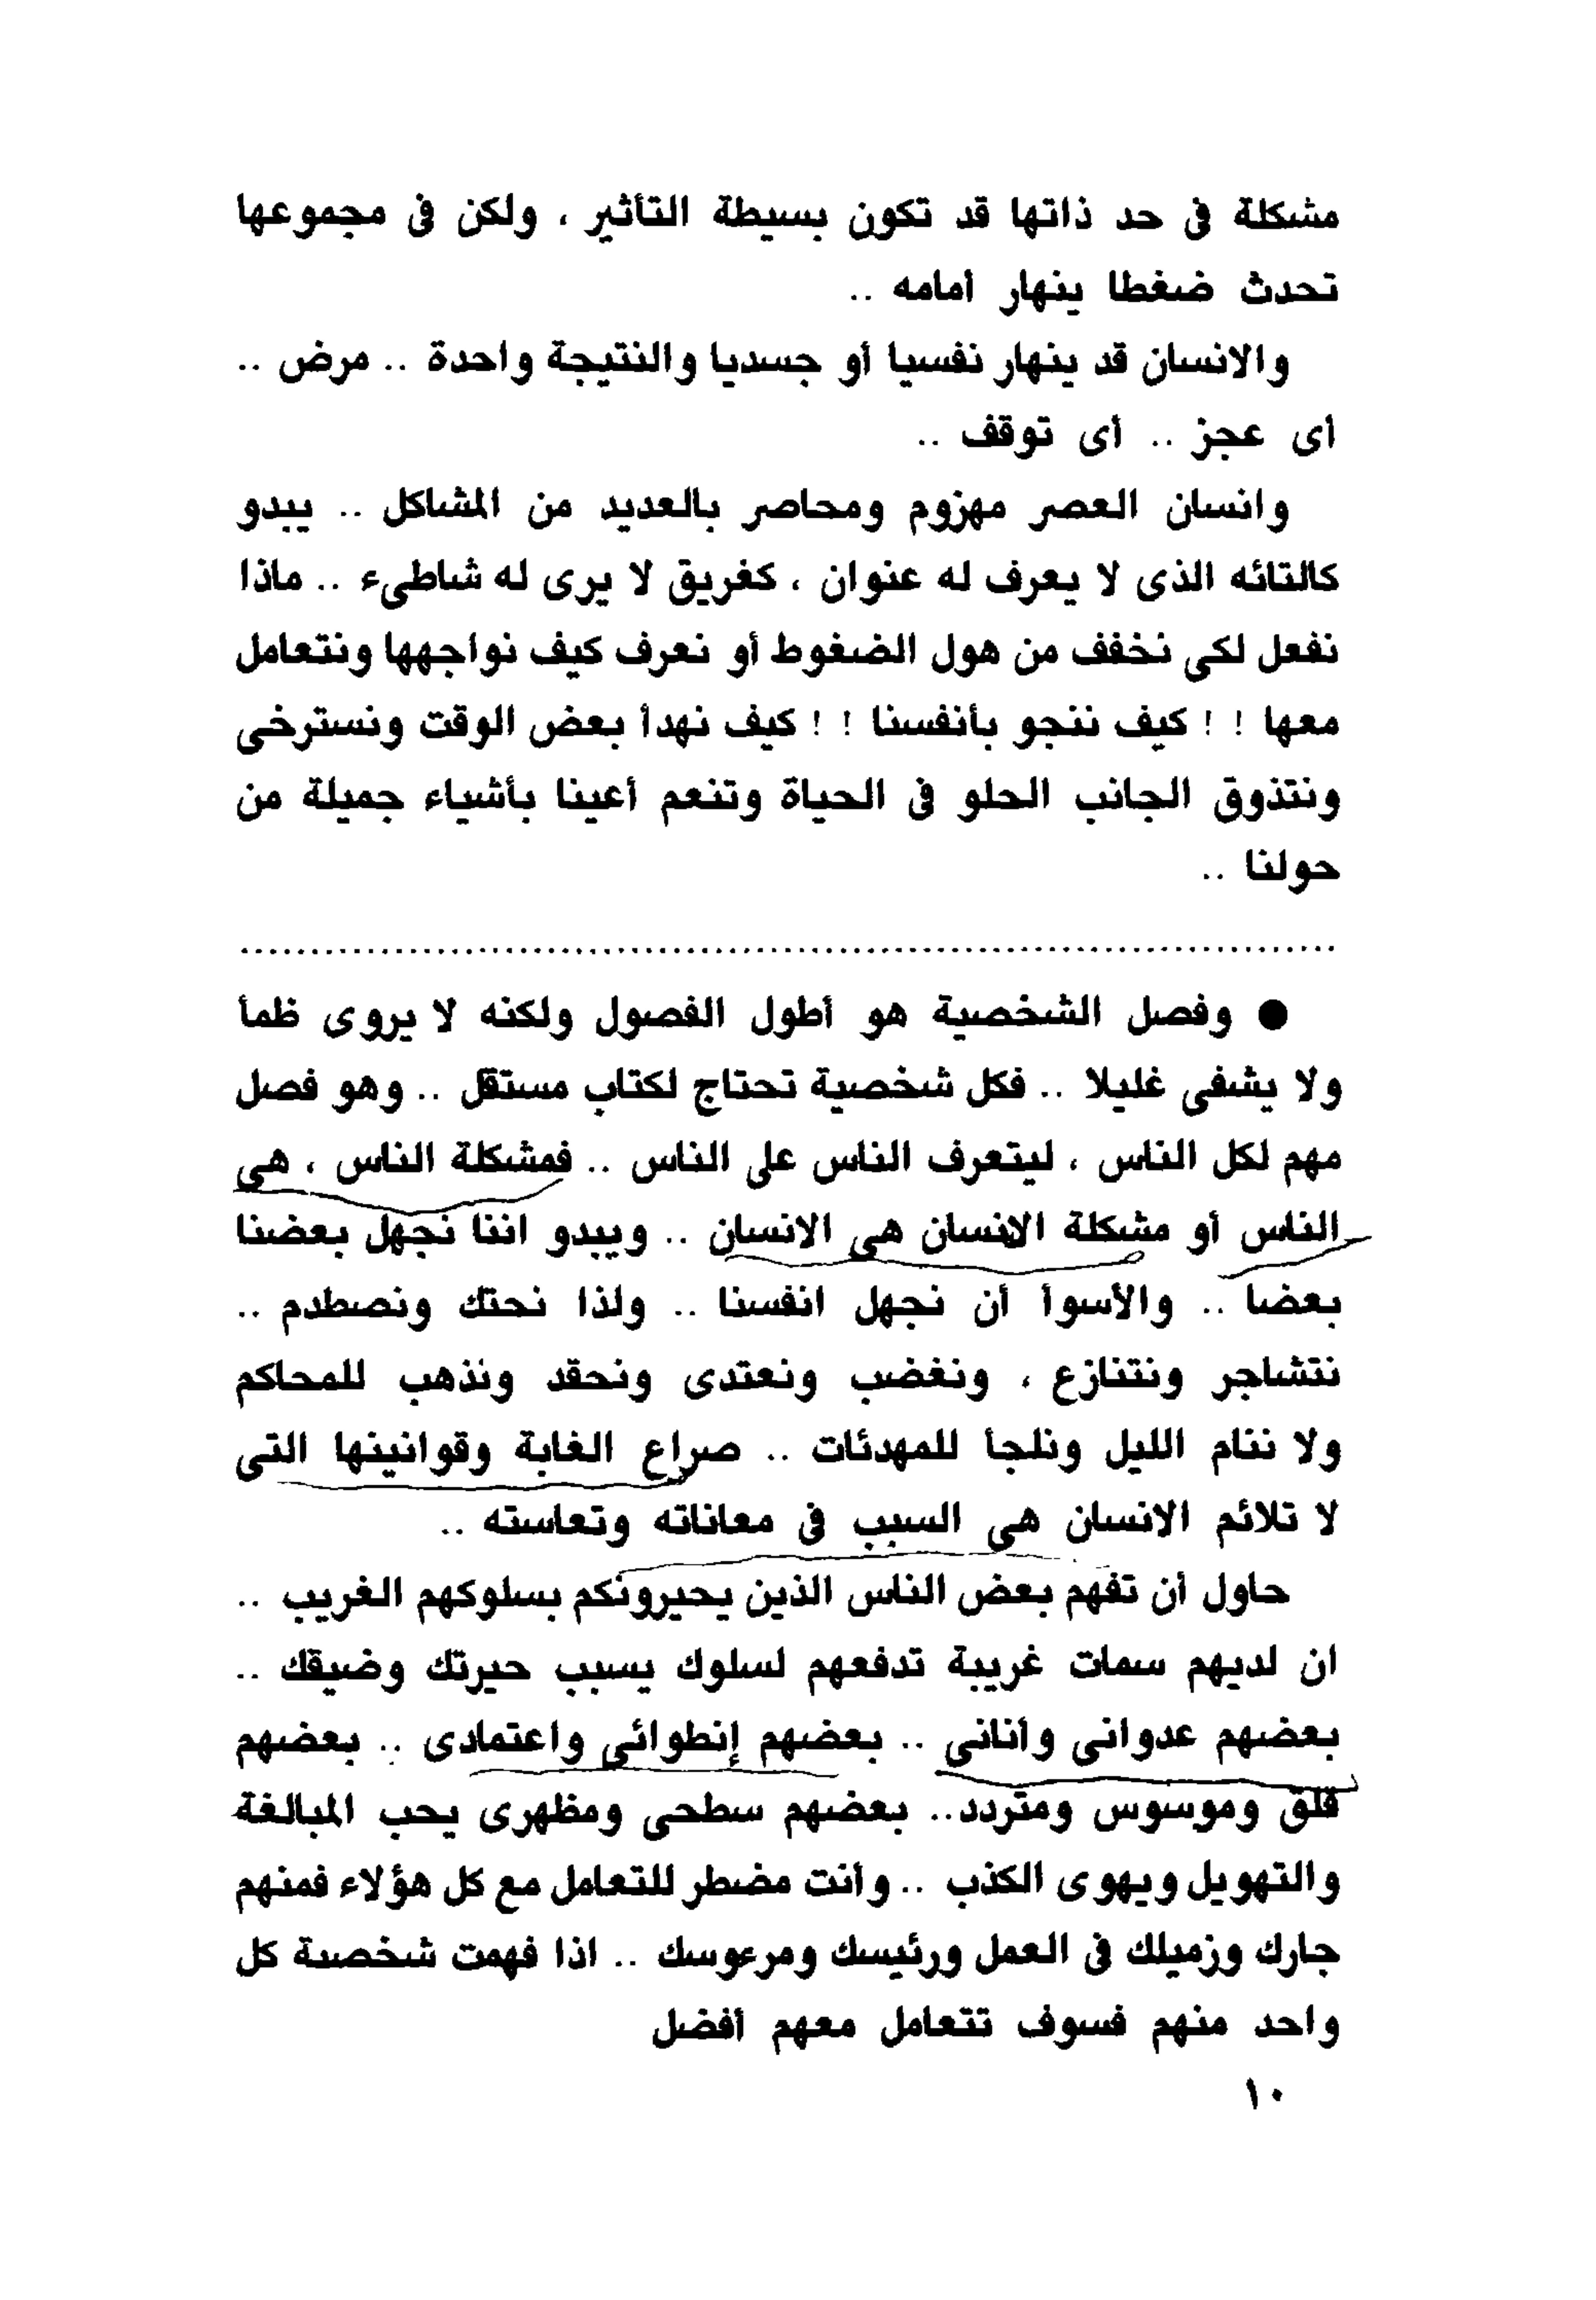 مشكلة فى حد ذاتها قد تكون بسيطة التأثير ، ولكن فى مجموعها
تحدث ضغطا ينهار أمامه ..
والانسان قد ينهار نفسيا أو جسديا والنتيجة واحدة .. مرض ..
أى عجز .. أى توقف ..
وانسان العصر مهزوم ومحاصر بالعديد من المشاكل .. يبدو
كالتائه الذى لا يعرف له عنوان ، كغريق لا يرى له شاطىء .. ماذا
نفعل لكى نخفف من هول الضغوط أو نعرف كيف نواجهها ونتعامل
معها ! ! كيف ننجو بأنفسنا ! ! كيف نهدأ بعض الوقت ونسترخى
ونتذوق الجانب الحلو فى الحياة وتنعم أعينا بأشياء جميلة من
حولنا ..
................................................................................
● وفصل الشخصية هو أطول الفصول ولكنه لا يروى ظمأ
ولا يشفى غليلا .. فكل شخصية تحتاج لكتاب مستقل .. وهو فصل
مهم لكل الناس ، ليتعرف الناس على الناس .. فمشكلة الناس ، هى
الناس أو مشكلة الإنسان هى الانسان .. ويبدو اننا نجهل بعضنا
بعضا .. والأسوأ أن نجهل انفسنا .. ولذا نحتك ونصطدم ..
نتشاجر ونتنازع ، ونغضب ونعتدى ونحقد ونذهب للمحاكم
ولا ننام الليل ونلجأ للمهدئات .. صراع الغابة وقوانينها التى
لا تلائم الانسان هى السبب فى معاناته وتعاسته ..
حاول أن تفهم بعض الناس الذين يحيرونكم بسلوكهم الغريب ..
ان لديهم سمات غريبة تدفعهم لسلوك يسبب حيرتك وضيقك ..
بعضهم عدوانى وأنانى .. بعضهم إنطوائى واعتمادى .. بعضهم
قلق وموسوس ومتردد.. بعضهم سطحى ومظهرى يحب المبالغة
والتهويل ويهوى الكذب .. وأنت مضطر للتعامل مع كل هؤلاء فمنهم
جارك وزميلك فى العمل ورئيسك ومرءوسك .. اذا فهمت شخصية كل
واحد منهم فسوف تتعامل معهم أفضل
١٠